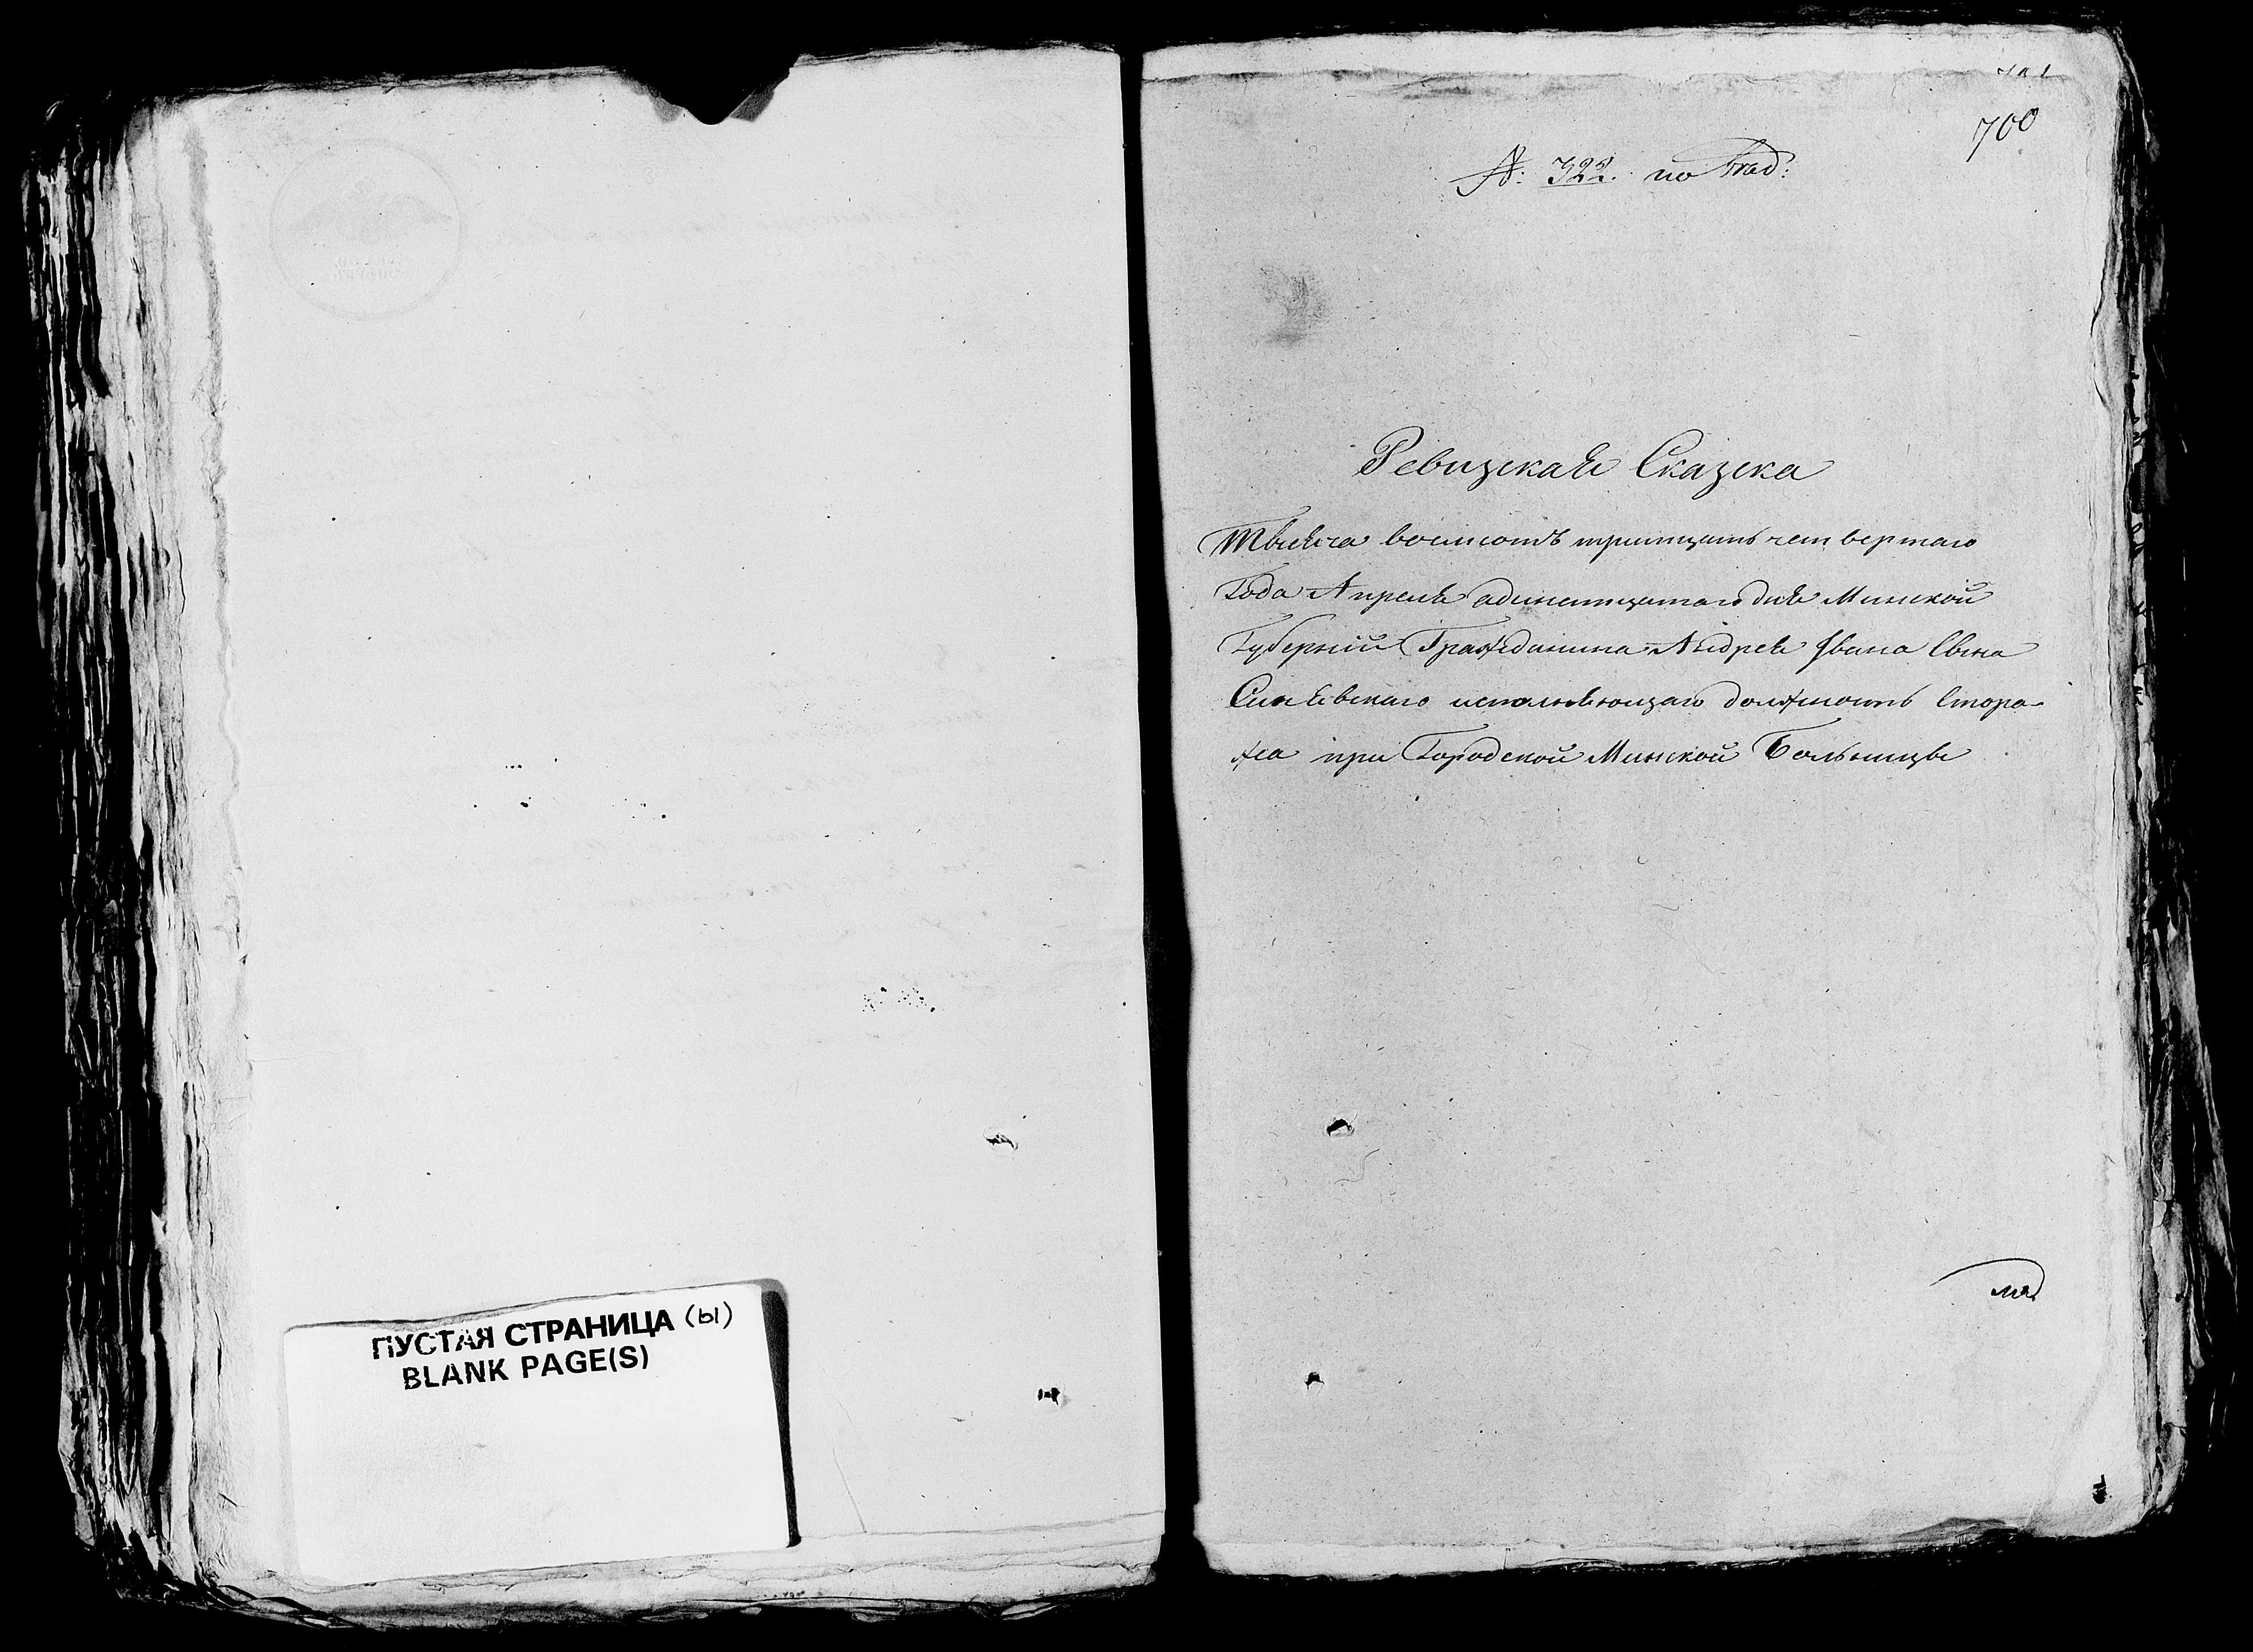 ПУСТАЯ СТРАНИЦА (ы)
BLANK PAGE(S)
700
№: 322. по
Ревизская Сказка
Тысяча восмсотъ тритцать четвертаго
Года Апреля адинатцатаго дня Минской
Губерніи Гражданина Андрея Ивана Сына
исполняющаго должность Сторо-
жа при Городской Минской Больницы